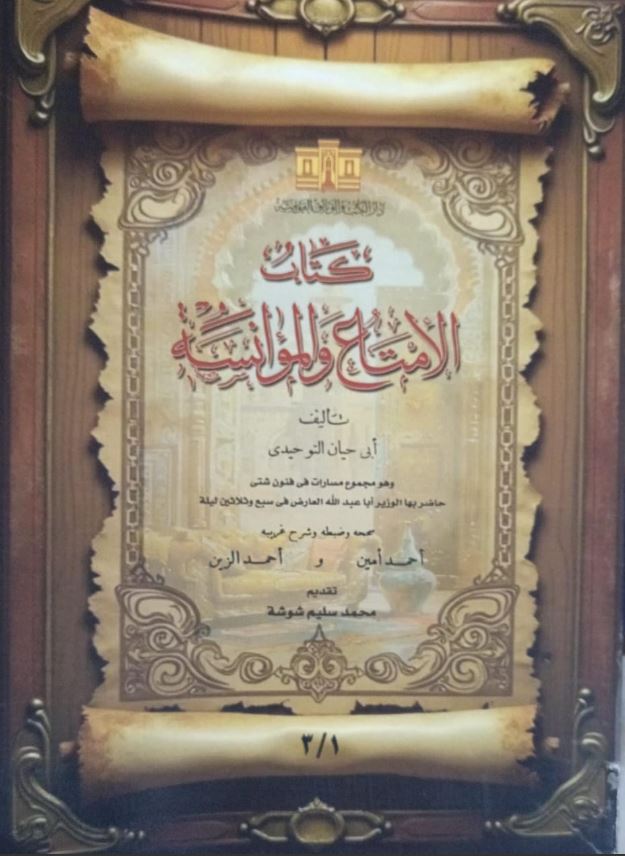 دار الكتب والوثائق القومية
كتاب
الإمتاع والمؤانسة
تأليف
أبى حيان التوحيدى
وهو مجموع مسارات فى فنون شتى
حاضر بها الوزير أبا عبد الله العارض فى سبع وثلاثين ليلة
صححه وضبطه وشرح غريبه
أحمد أمين و أحمد الزين
تقديم
محمد سليم شوشة
٣/١